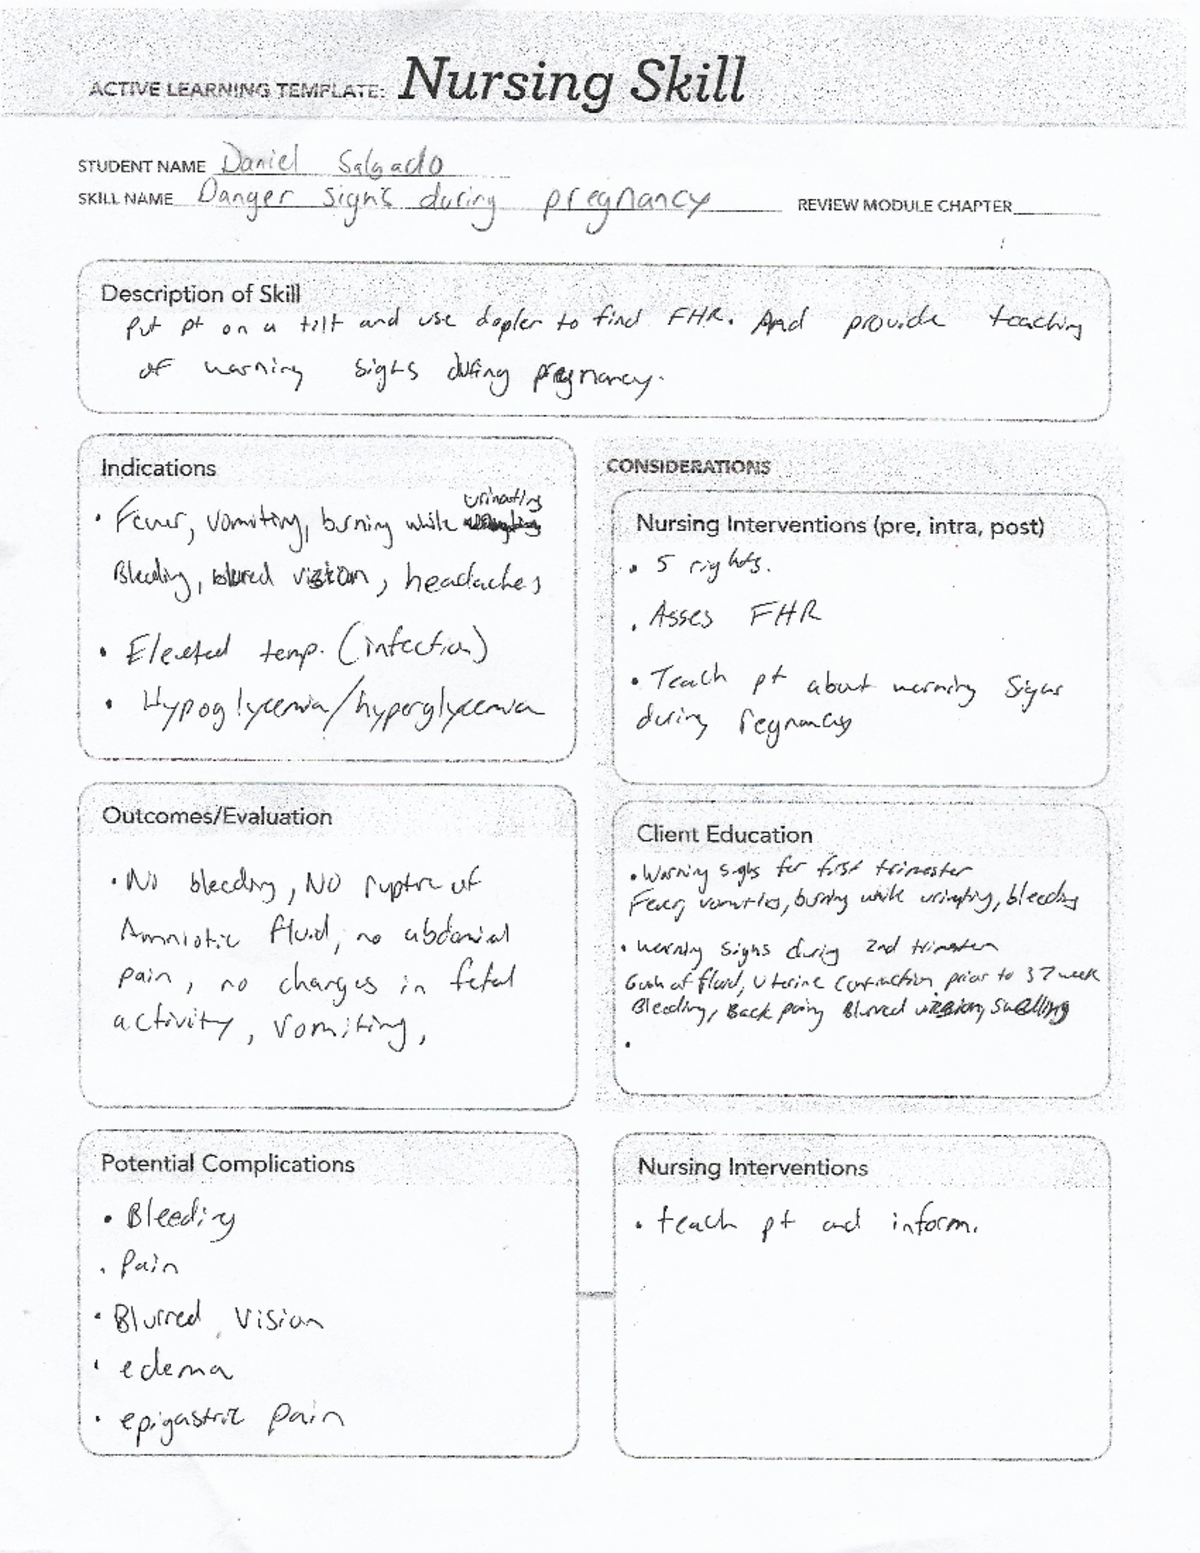 ACTIVE LEARNING TEMPLATE: Nursing Skill
STUDENT NAME Daniel Salgado
SKILL NAME Danger signs during pregnancy REVIEW MODULE CHAPTER
Description of Skill
Put pt on a tilt and use dopler to find FHR. And provide teaching
of warning signs during pregnancy.
Indications
• Fever, vomiting, burning while urinating
Bleeding, blured vision, headaches
• Elevated temp. (infection)
• Hypoglycemia/hyperglycemia
CONSIDERATIONS
Nursing Interventions (pre, intra, post)
• 5 rights.
• Asses FHR
• Teach pt about warning signs
during Pregnancy
Outcomes/Evaluation
• No bleeding, NO rupture of
Amniotic fluid, no abdominal
pain, no changes in fetal
activity, vomiting,
Client Education
• Warning signs for first trimester
Fever, burning while urinating, bleeding
• Warning signs during 2nd trimester
Gush of fluid, Uterine contraction prior to 37 week
Bleeding, Back pain, Blurred vision, Swelling
•
Potential Complications
• Bleeding
• Pain
• Blurred Vision
• edema
• epigastric pain
Nursing Interventions
• teach pt and inform.